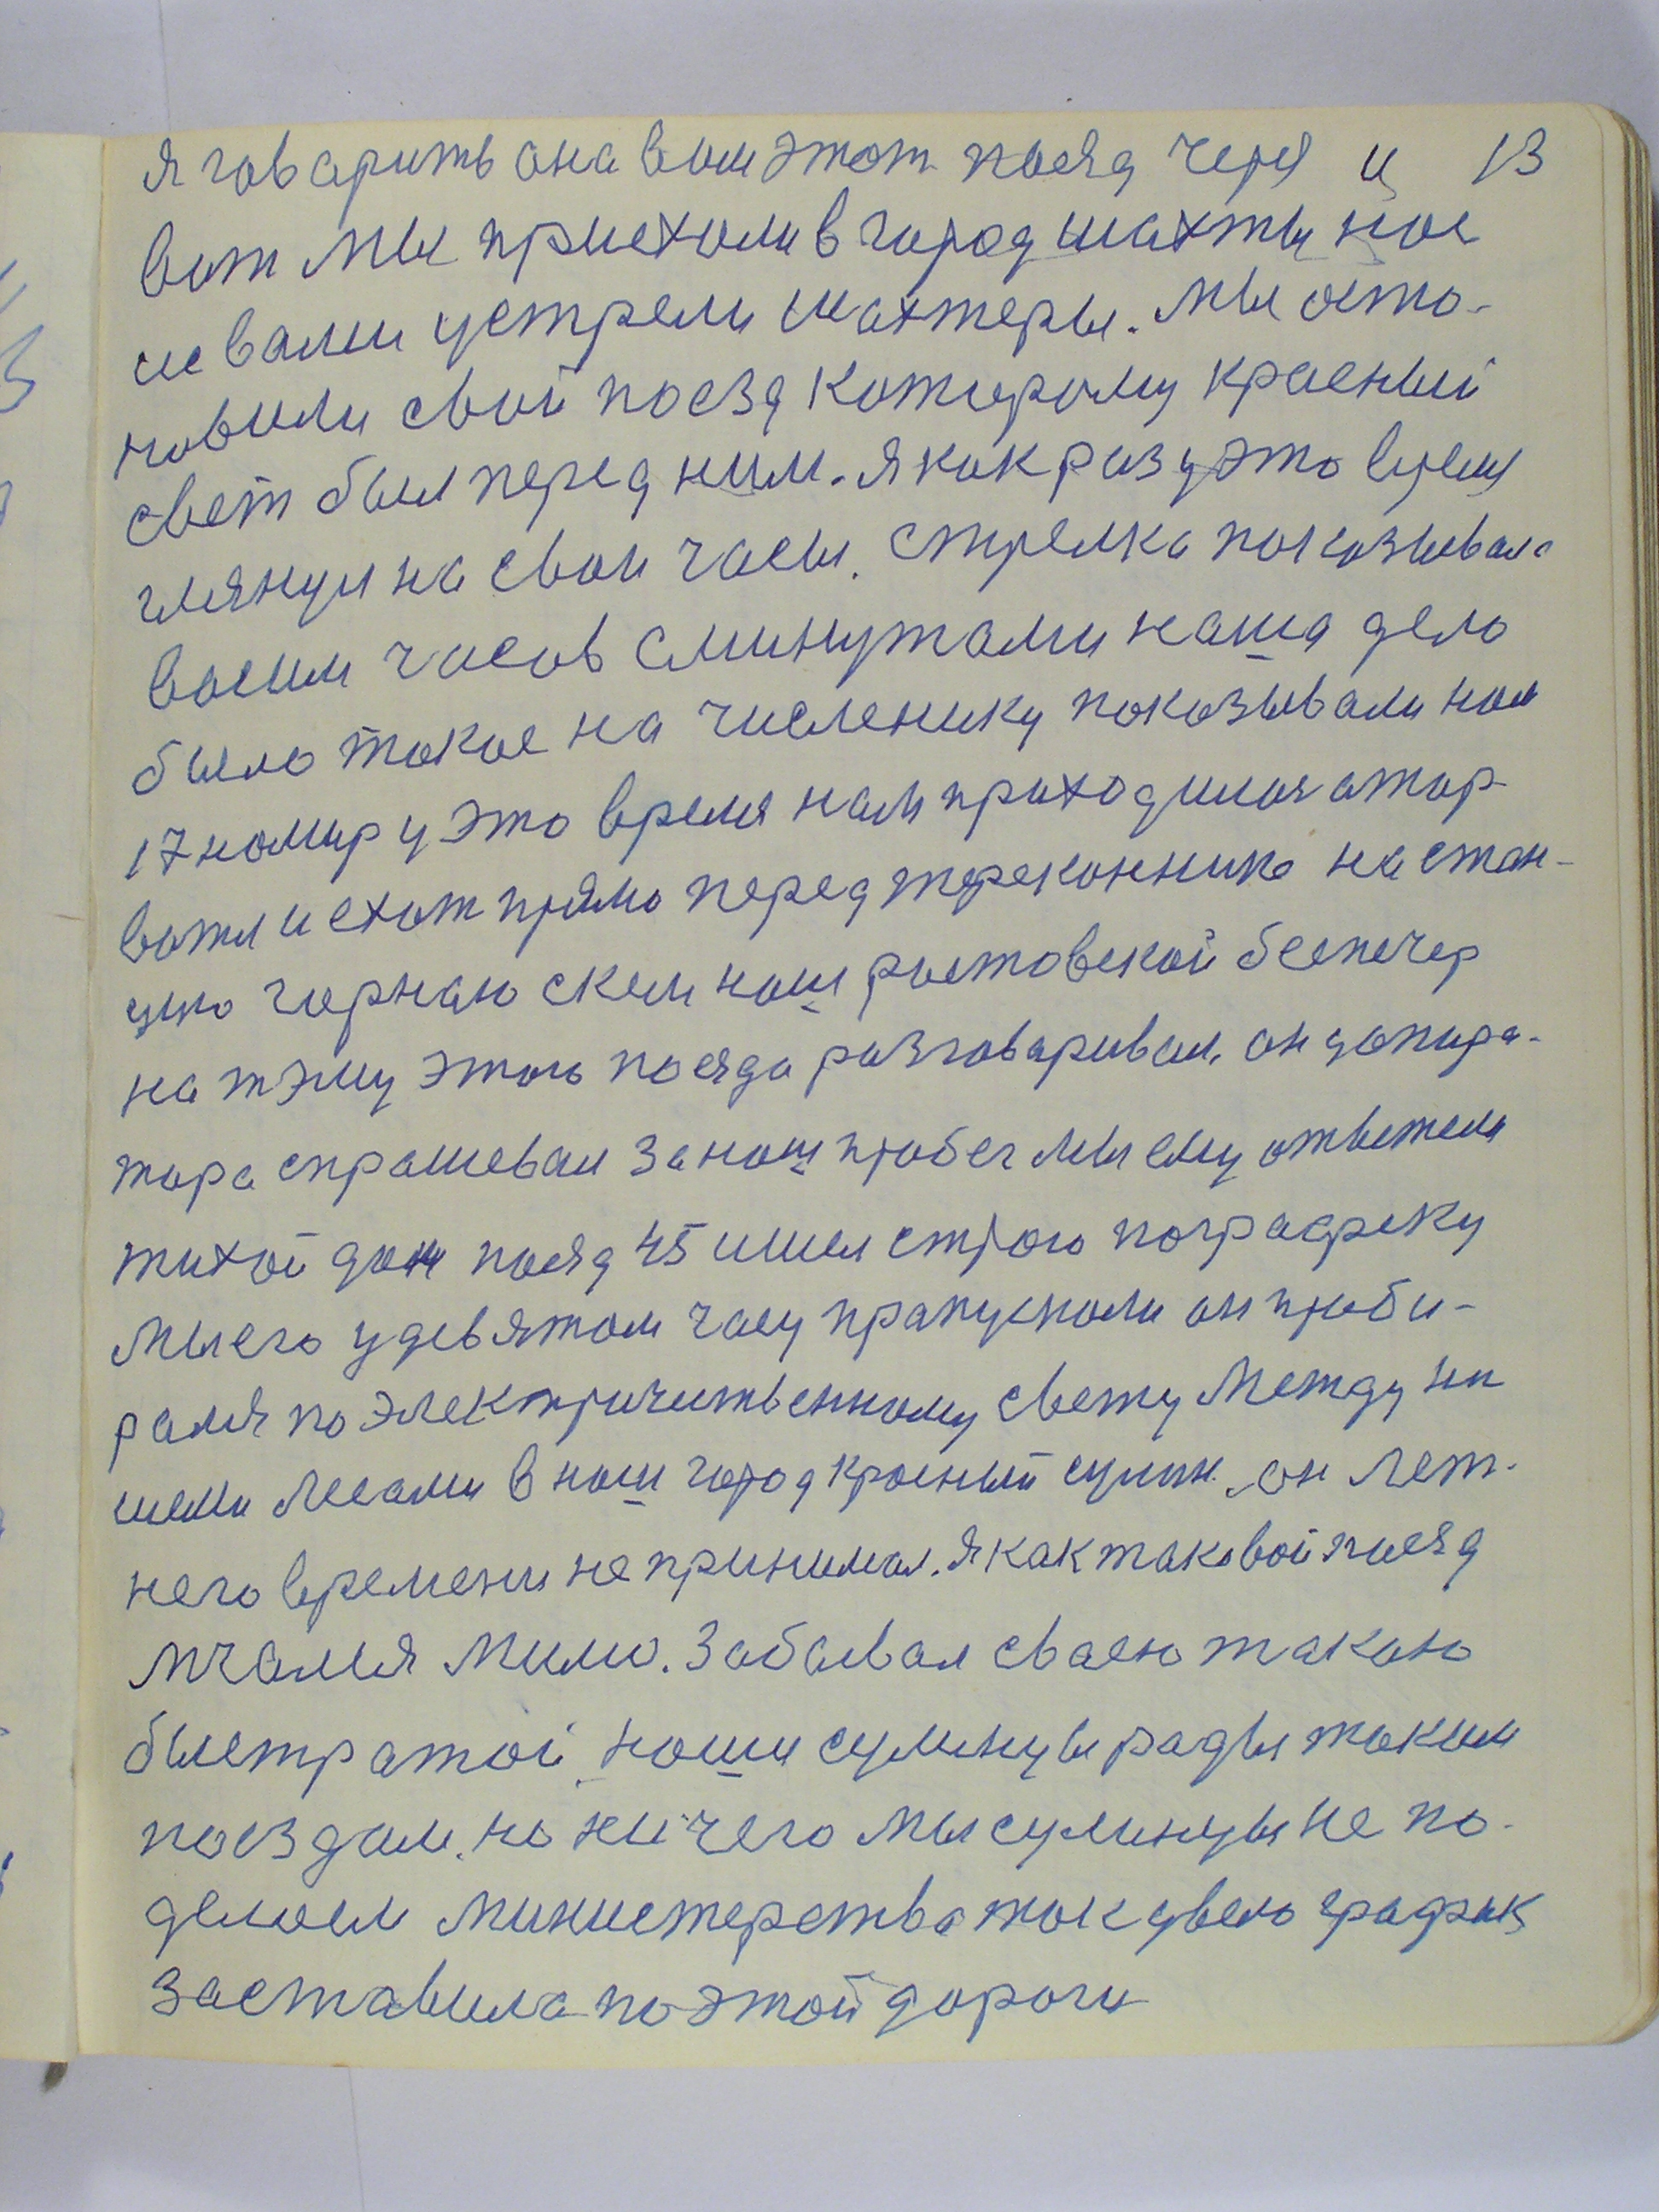 я говарить она вом этот пояяд черя и 13
вот мы приехали в город шахты нас
с вами устрели шахтеры. мы оста-
новили свой поезд которому красный
свет был перед ним. я как раз у это время
глянул на свои часы. стрелка показывала
восим часов с минутами наша дело
было такое на численику показывали нам
17 номир у это время нам приходилося атар-
ватя и ехат прямо перед тереконника на стан-
цию горнаю с кем наш ростовской беспечер
на тэму этого пояда разговаривал, он допира-
тара спрашевал за наш пробег мы ему ответели
тихой дон пояд 45 ишел строго по графеку
мы его у девятом часу прапускали он проби-
рался по электричитвенному свету между ни
шеми лесами в наш город красный сулин, он лет-
него времени не принимал. я как таковой пояяд
мчался мимо. забывал сваею такаю
быстратой, наши сулинцы рады таким
поездам, но ничего мы сулинцы не по-
делаем министерства так увело график
заставила по этой дороги